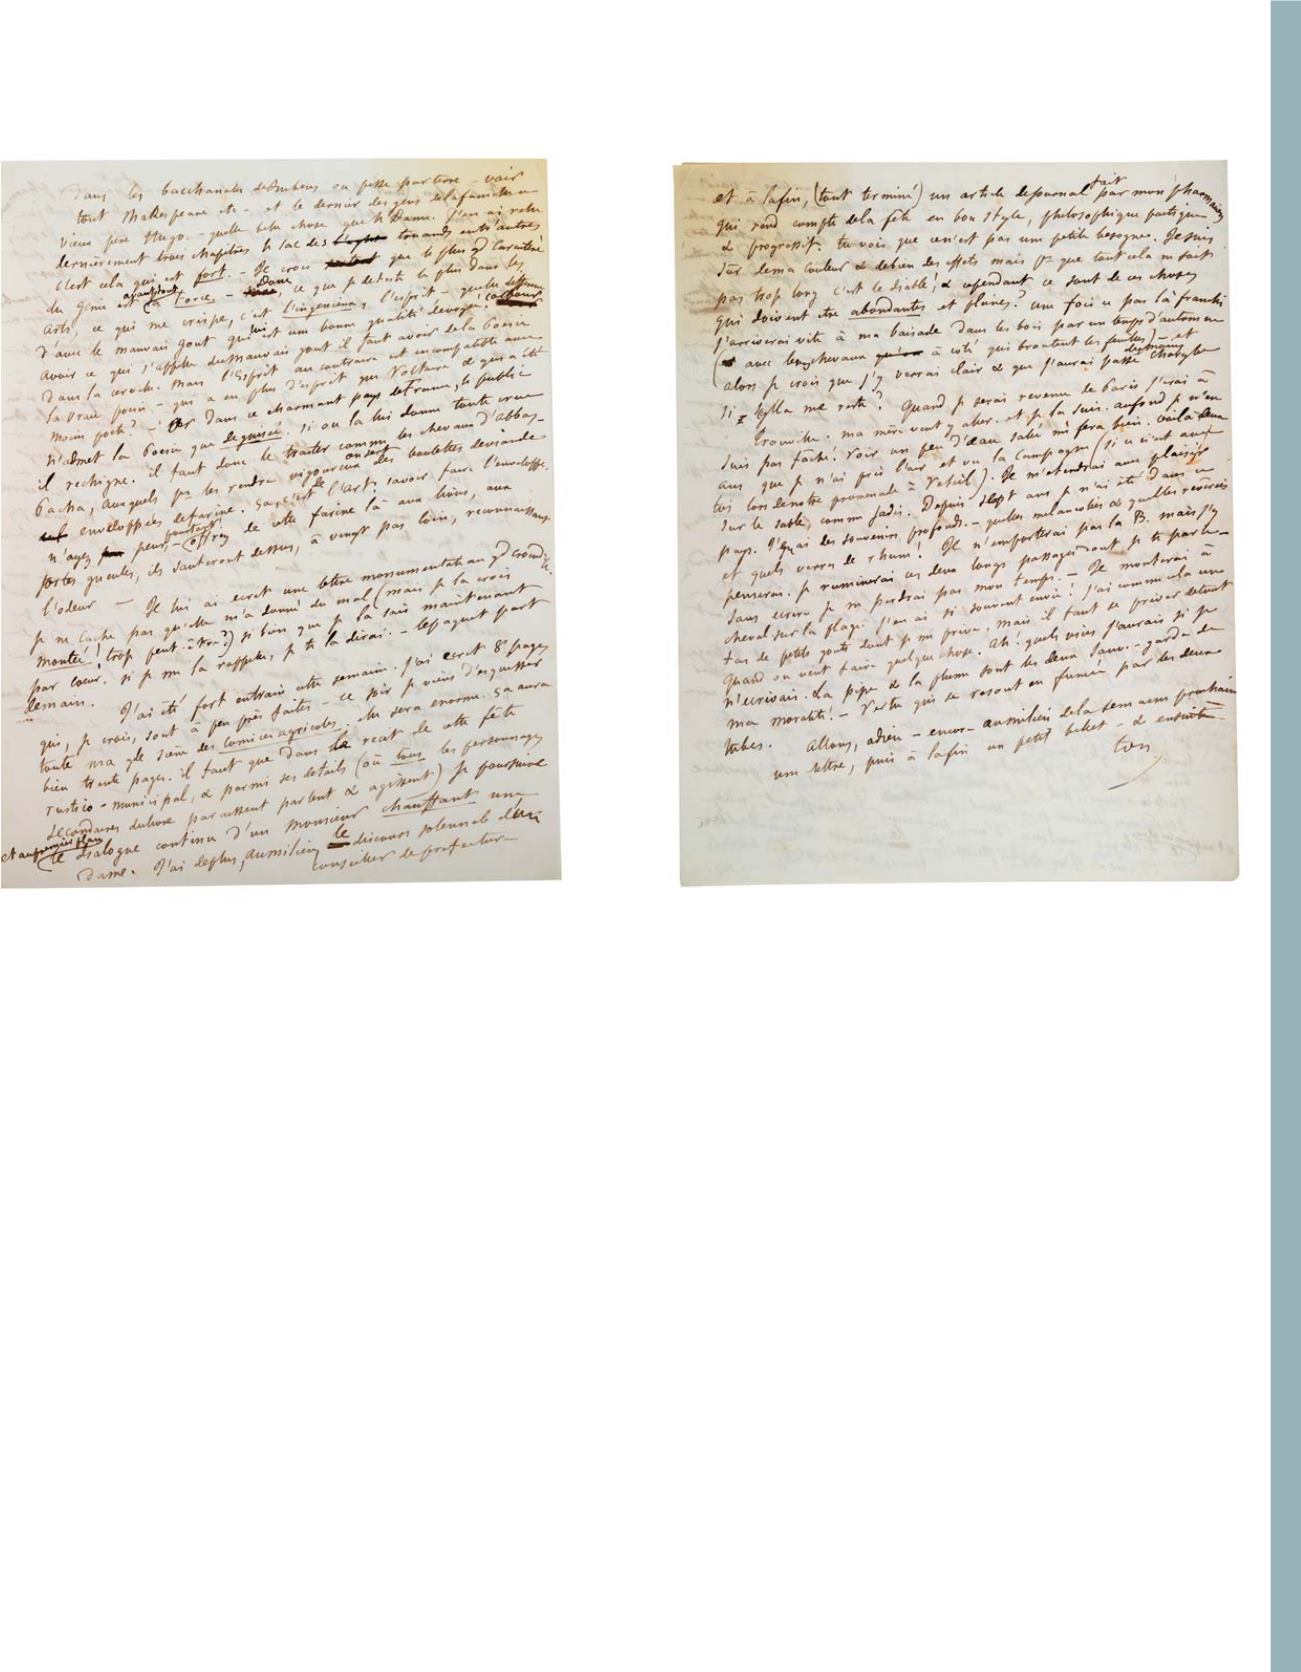 dans les bacchanales de Rubens on pisse par terre - voir
tout Shakespeare etc - et le dernier des gens de la famille
vieux père Hugo. - quelle belle chose que N Dame. J'en ai relu
dernièrement trois chapitres le sac des truands entr'autres
c'est cela qui est fort. - Je crois que le plus gd caractère
du Génie est avant tout la Force. - Donc, ce que je deteste le plus dans les
arts, ce qui me crispe, c'est l'ingénieux, l'esprit - quelle difference
d'avec le mauvais gout qui lui est une bonne qualité dévoyée. car pour
avoir ce qui s'appelle du mauvais gout il faut avoir de la Poesie
dans la cervelle. mais l'Esprit au contraire est incompatible avec
la vraie poesie - qui a eu plus d'esprit que Voltaire & qui a été
moins poete? - Or dans ce charmant pays de France, le public
n'admet la Poesie que deguisée. Si on la lui donne toute crue
il rechigne. il faut donc le traiter comme les chevaux d'Abbas-
Pacha, auxquels pr les rendre vigoureux on sert des boulettes de viande
enveloppées de farine. Ça c'est de l'Art. savoir faire l'enveloppe.
n'ayez peur pourtant - offrez de cette farine là aux lions, aux
fortes gueules, ils sauteront dessus, à vingt pas loin, reconnaissant
l'odeur - Je lui ai écrit une lettre monumentale au gd crocodile.
je ne cache pas qu'elle m'a donné du mal (mais je la crois
montée! trop peut-être?) si bien que je la sais maintenant
par coeur. si je me la rappelle, je te la dirai. - le paquet part
demain. J'ai été fort en train cette semaine. J'ai écrit 8 pages
qui, je crois, sont à peu près faites - ce soir je viens d'esquisser
toute ma gde scène des comices agricoles. elle sera enorme. ça aura
bien trente pages. il faut que dans le recit de cette fête
rustico-municipale, & parmi ses details (où tous les personnages
secondaires du livre paraissent parlent & agissent) je poursuive
et au premier plan le dialogue continu d'un monsieur chauffant une
dame. J'ai de plus, au milieu le discours solennel d'un
conseiller de prefecture
et à la fin, (tout terminé) un article de journal fait par mon pharmacien
qui rend compte de la fête en bon style, philosophique poetique
& progressif. tu vois que ce n'est pas une petite besogne. Je suis
sûr de ma couleur & de bien des effets mais pr que tout cela ne soit
pas trop long c'est le diable! & cependant ce sont de ces choses
qui doivent être abondantes et pleines? une fois ce pas là franchi
j'arriverai vite à ma baisade dans les bois par un temps d'automne
(avec leurs chevaux à côté qui broutent les feuilles) - et
alors je crois que j'y verrai clair & que j'aurai passé du moins Charybde
si Scylla me reste? Quand je serai revenu de Paris j'irai à
Trouville. ma mère veut y aller. et je la suis. au fond je n'en
suis pas faché. Voir un peu d'eau salée me fera bien. voilà deux
ans que je n'ai pris l'air et vu la campagne (si ce n'est avec
toi lors de notre promenade à Vetheuil). Je m'etendrai avec plaisir
sur le sable, comme jadis. Depuis sept ans je n'ai été dans ce
pays. J'en ai des souvenirs profonds. - quelles melancolies & quelles rêveries
et quels verres de rhum! Je n'emporterai pas la B. mais j'y
penserai. je ruminerai ces deux longs passages dont je te parle -
sans ecrire je ne perdrai pas mon temps. - Je monterai à
cheval sur la plage. j'en ai si souvent envie! J'ai comme cela un
tas de petits gouts dont je me prive. mais il faut se priver de tout
quand on veut faire quelque chose. Ah! quels vices j'aurais si je
n'ecrivais. La pipe & la plume sont les deux sauve-garde de
ma moralité. - Vertu qui se resout en fumée par les deux
tubes. Allons, adieu - encore au milieu de la semaine prochaine
une lettre, puis à la fin un petit billet - & ensuite
ton